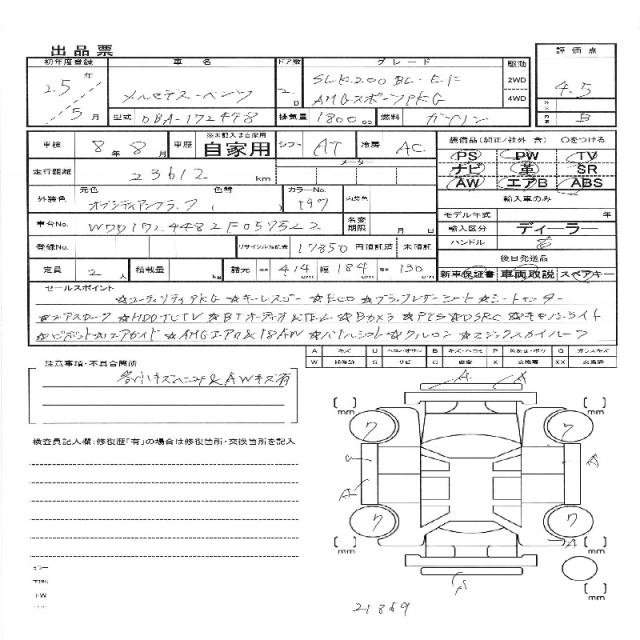 出品票
初年度登録 車名 ドア数 グレード 駆動 評価点
25年 5月 メルセデス・ベンツ 2D SLK200 BL・E.F 2WD 4.5
AMGスポーツPKG 4WD
型式 DBA-172448 排気量 1800cc 燃料 ガソリン B
車検 8年8月 車歴 自家用 シフト AT 冷房 AC
装備品(純正/社外 含) ○をつける
PS PW TV
ナビ 革 SR
AW エアB ABS
走行距離 23612 km メーター
外装色 元色 オブシディアンブラック 色替 カラーNo. 197 内装色
輸入車のみ
モデル年式 年
輸入区分 ディーラー
ハンドル 右
車台No. WDD1724482F057522 名変期限 月 日
登録No. リサイクル預託金 17850 円 預託済 未預託
後日発送品
新車保証書 車両取説 スペアキー
定員 2人 積載量 kg 諸元 長 414 幅 184 高 130
セールスポイント
☆ユーティリティPKG ☆キーレスゴー ☆ECO ☆ブラックレザーシート ☆シートヒーター
☆エアスカーフ ☆HDDナビTV ☆BTオーディオ&TEL ☆Bカメラ ☆PTS ☆DSRC ☆キセノンライト
☆AMGエアロ&18AW ☆パドルシフト ☆クルコン ☆マジックスカイルーフ
A キズ U B キズ・ヘコミ P G ガンスキズ
W S サビ C 腐食 X XX
注意事項・不具合箇所
各小キズヘコミ&AWキズ有
検査員記入欄:修復歴「有」の場合は修復箇所・交換箇所を記入
A A
mm mm
7 7
A
7 7
A
mm mm
A
mm
21869